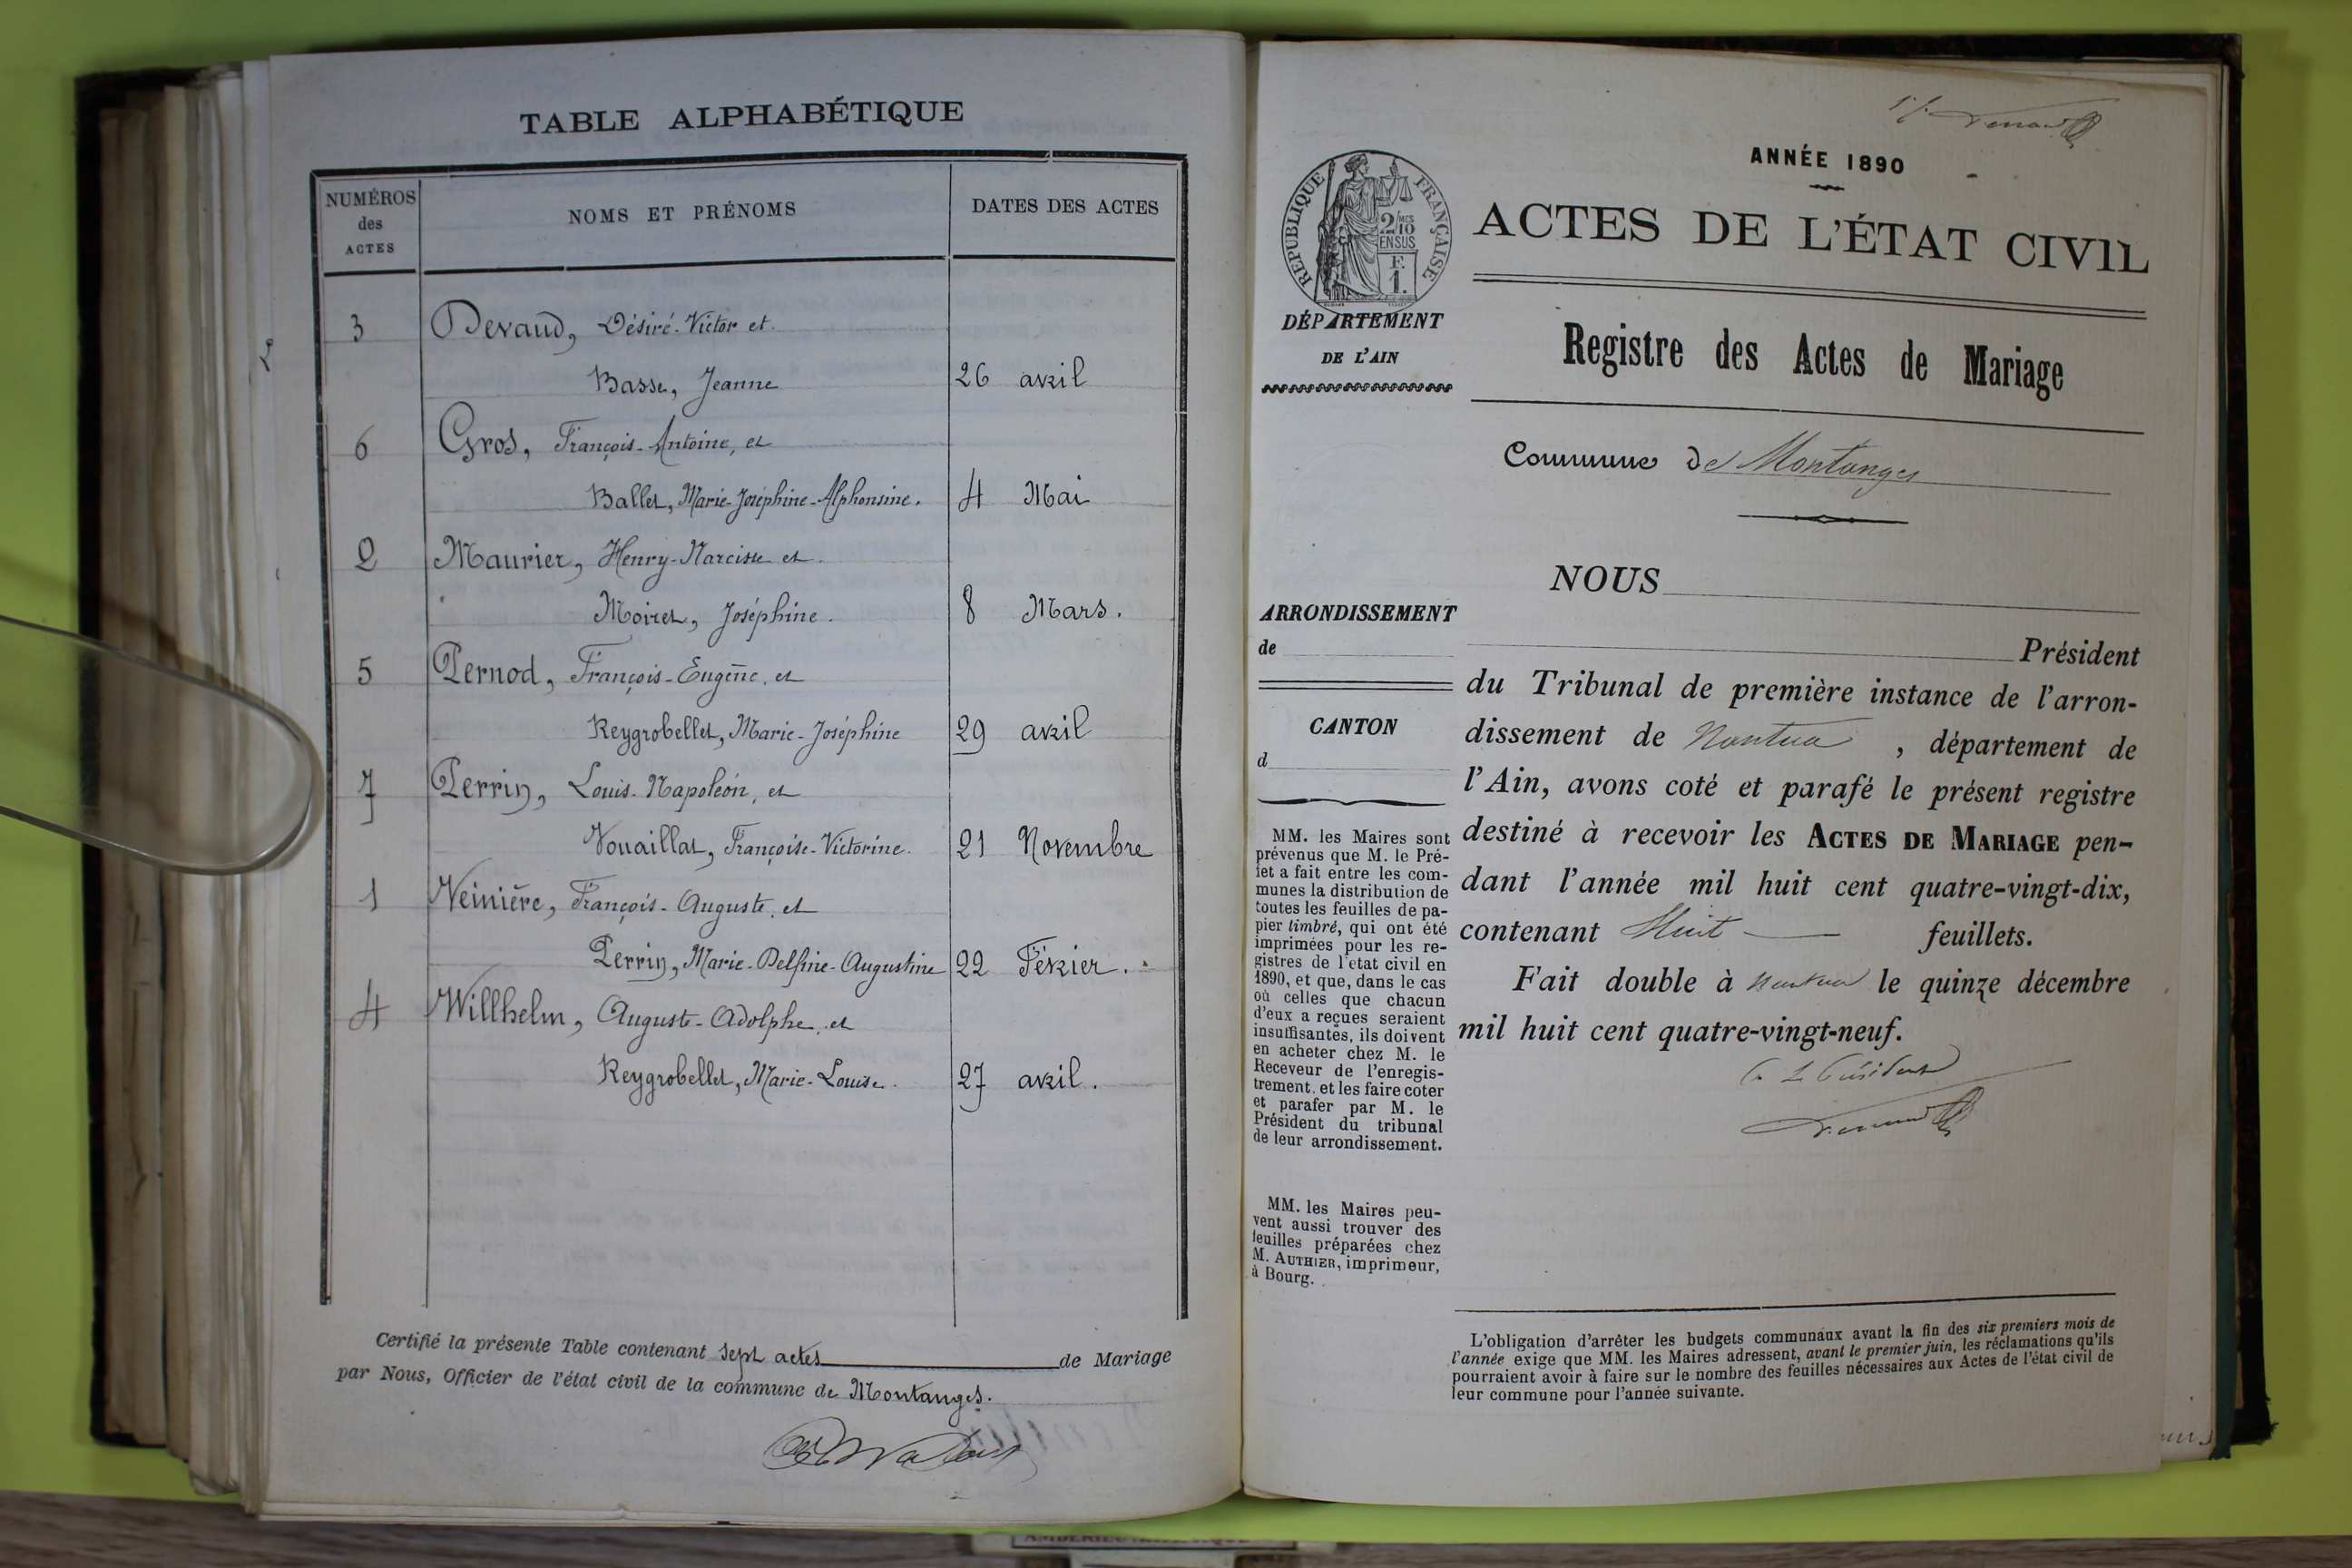 TABLE ALPHABÉTIQUE
NUMÉROS
des
ACTES
NOMS ET PRÉNOMS
DATES DES ACTES
3 Devaud, Désiré-Victor et
Basse, Jeanne 26 avril
6 Gros, François-Antoine, et
Ballet, Marie-Joséphine-Alphonsine. 4 Mai
2 Maurier, Henry-Narcisse et
Moiret, Joséphine. 8 Mars.
5 Pernod, François-Eugène, et
Reygrobellet, Marie-Joséphine 29 avril
7 Perrin, Louis-Napoléon, et
Vouaillat, Françoise-Victorine. 21 Novembre
1 Neinière, François-Auguste, et
Perrin, Marie-Delfine-Augustine 22 Février.
4 Willhelm, Auguste-Adolphe, et
Reygrobellet, Marie-Louise. 27 avril.
Certifié la présente Table contenant sept actes de Mariage
par Nous, Officier de l'état civil de la commune de Montanges.
ANNÉE 1890
RÉPUBLIQUE FRANÇAISE
2/10
MES
EN SUS
F.
1.
ACTES DE L'ÉTAT CIVIL
DÉPARTEMENT
DE L'AIN
Registre des Actes de Mariage
Commune de Montanges
ARRONDISSEMENT
de
CANTON
d
MM. les Maires sont
prévenus que M. le Pré-
fet a fait entre les com-
munes la distribution de
toutes les feuilles de pa-
pier timbré, qui ont été
imprimées pour les re-
gistres de l'état civil en
1890, et que, dans le cas
où celles que chacun
d'eux a reçues seraient
insuffisantes, ils doivent
en acheter chez M. le
Receveur de l'enregis-
trement, et les faire coter
et parafer par M. le
Président du tribunal
de leur arrondissement.
MM. les Maires peu-
vent aussi trouver des
feuilles préparées chez
M. AUTHIER, imprimeur,
à Bourg.
NOUS
Président
du Tribunal de première instance de l'arron-
dissement de Nantua, département de
l'Ain, avons coté et parafé le présent registre
destiné à recevoir les ACTES DE MARIAGE pen-
dant l'année mil huit cent quatre-vingt-dix,
contenant Huit feuillets.
Fait double à Nantua le quinze décembre
mil huit cent quatre-vingt-neuf.
Le Président
L'obligation d'arrêter les budgets communaux avant la fin des six premiers mois de
l'année exige que MM. les Maires adressent, avant le premier juin, les réclamations qu'ils
pourraient avoir à faire sur le nombre des feuilles nécessaires aux Actes de l'état civil de
leur commune pour l'année suivante.